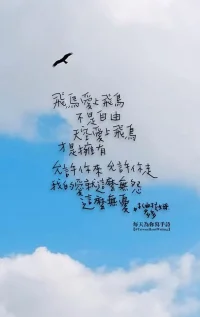 飛鳥愛上飛鳥
不是自由
天空愛上飛鳥
才是擁有
允許你來 允許你走
我的愛就這麼無怨
這麼無憂
每天為你寫手詩